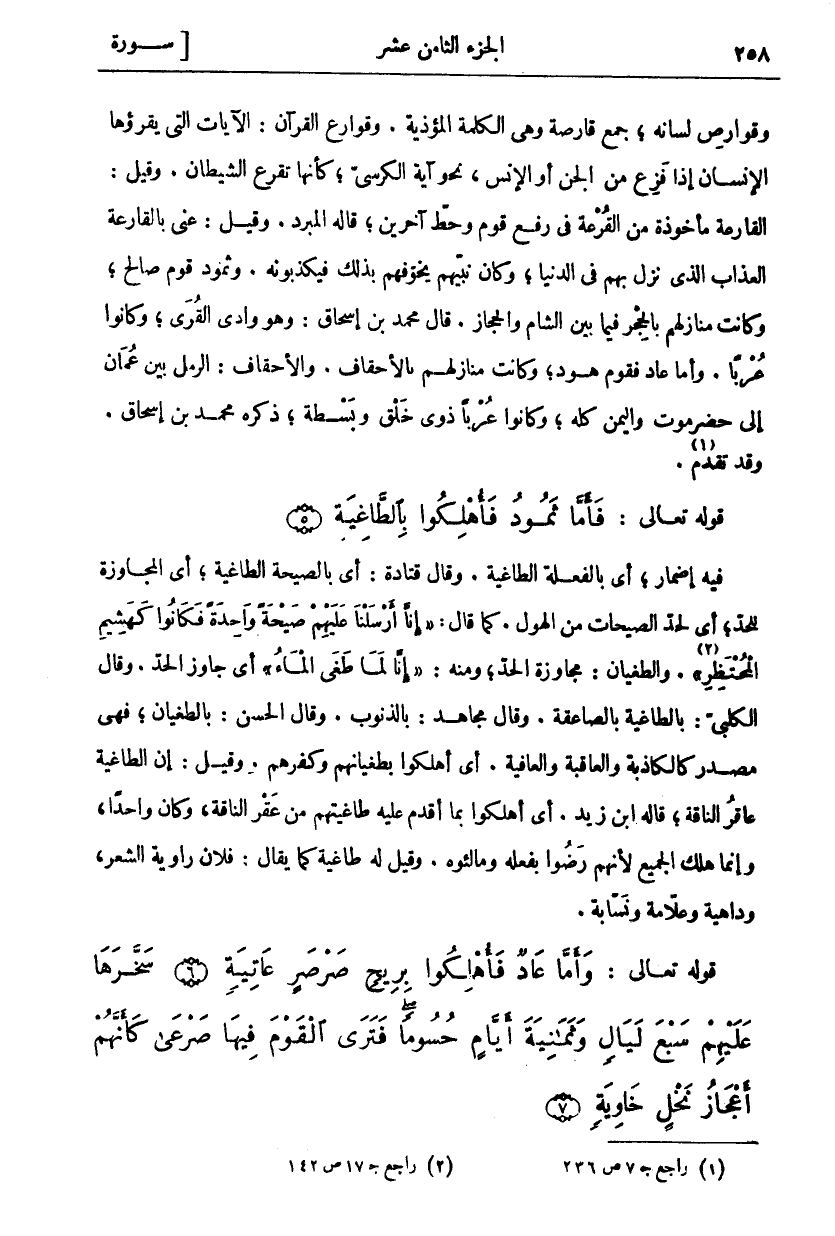 ٢٥٨ الجزء الثامن عشر [ ســورة
وقوارص لسانه ؛ جمع قارصة وهى الكلمة المؤذية . وقوارع القرآن : الآيات التى يقرؤها
الإنســان إذا فَزِع من الجن أو الإنس ، نحو آية الكرسىّ ؛ كأنها تقرع الشيطان . وقيل :
القارعة مأخوذة من القُرْعة فى رفــع قوم وحطّ آخرين ؛ قاله المبرد . وقيــل : عنى بالقارعة
العذاب الذى نزل بهم فى الدنيا ؛ وكان نبيّهم يخوّفهم بذلك فيكذبونه . وثمود قوم صالح ؛
وكانت منازلهم بالحِجْر فيما بين الشام والحجاز . قال محمد بن إسحاق : وهو وادى القُرَى ؛ وكانوا
عُرْبًا . وأما عاد فقوم هــود؛ وكانت منازلهــم بالأحقاف . والأحقاف : الرمل بين عُمَان
إلى حضرموت واليمن كله ؛ وكانوا عُرْباً ذوى خَلْق وبَسْـطة ؛ ذكره محمــد بن إسحاق .
وقد تقدّم (١) .
قوله تعـالى : فَأَمَّا ثَمُـودُ فَأُهْلِـكُوا بِٱلطَّاغِيَـةِ ٥
فيه إضمار ؛ أى بالفعــلة الطاغية . وقال قتادة : أى بالصيحة الطاغية ؛ أى المجـاوزة
للحدّ؛ أى لحدّ الصيحات من الهول . كما قال : «إِنَّا أَرْسَلْنَا عَلَيْهِمْ صَيْحَةً وَاحِدَةً فَكَانُوا كَهَشِيمِ
الْمُحْتَظِرِ (٢)» . والطغيان : مجاوزة الحدّ؛ ومنه : «إِنَّا لَمَا طَغَى الْمَاءُ» أى جاوز الحدّ . وقال
الكلبىّ : بالطاغية بالصاعقة . وقال مجاهــد : بالذنوب . وقال الحسن : بالطغيان ؛ فهى
مصــدر كالكاذبة والعاقبة والعافية . أى أهلكوا بطغيانهم وكفرهم . وقيــل : إن الطاغية
عاقرُ الناقة ؛ قاله ابن زيد . أى أهلكوا بما أقدم عليه طاغيتهم من عَقْر الناقة، وكان واحدًا،
وإنما هلك الجميع لأنهم رَضُوا بفعله ومالئوه . وقيل له طاغية كما يقال : فلان راوية الشعر،
وداهية وعلّامة ونَسّابة .
قوله تعـالى : وَأَمَّا عَادٌ فَأُهْلِكُوا بِرِيحٍ صَرْصَرٍ عَاتِيَةٍ ٦ سَخَّرَهَا
عَلَيْهِمْ سَبْعَ لَيَالٍ وَثَمَـٰنِيَةَ أَيَّامٍ حُسُومًا ۖ فَتَرَى ٱلْقَوْمَ فِيهَا صَرْعَىٰ كَأَنَّهُمْ
أَعْجَازُ نَخْلٍ خَاوِيَةٍ ٧
(١) راجع جـ ٧ ص ٢٣٦ (٢) راجع جـ ١٧ ص ١٤٢